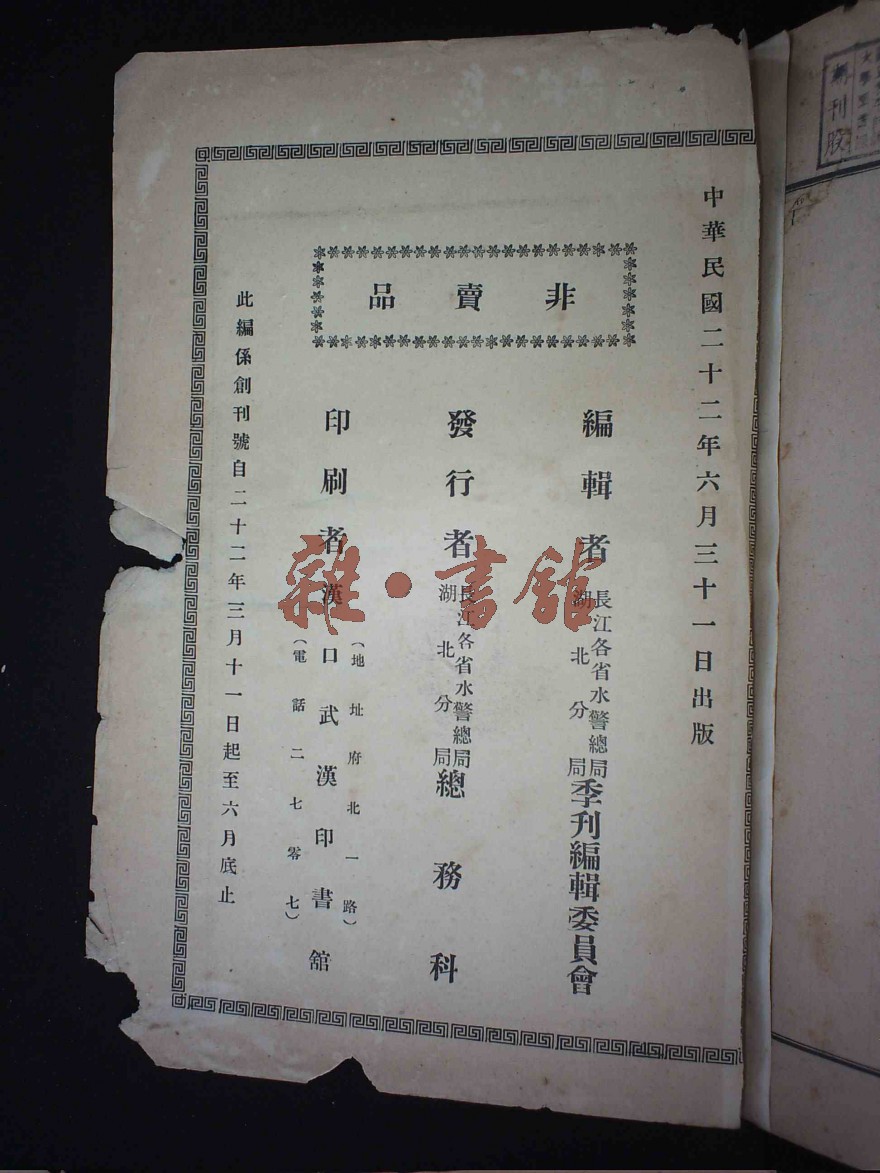 中華民國二十二年六月三十一日出版
非賣品
編輯者 長江各省水警總局湖北分局 季刊編輯委員會
發行者 長江各省水警總局湖北分局 總務科
印刷者 漢口武漢印書舘
(地址府北一路)
(電話二七零七)
此編係創刊號自二十二年三月十一日起至六月底止
雜·書舘
期刊股